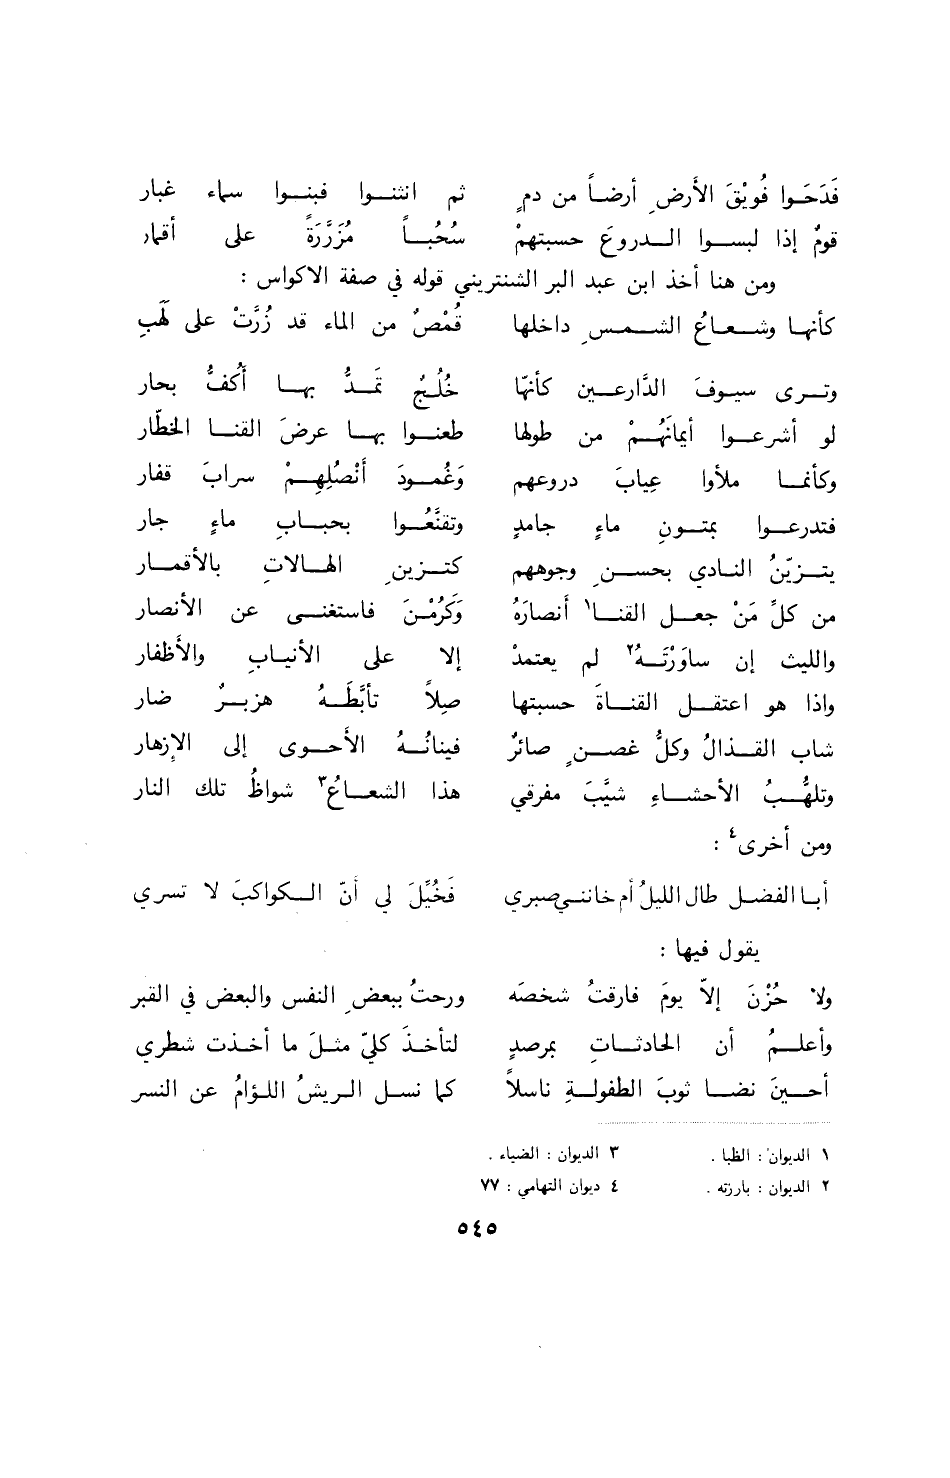 فَدَحَوا فُويْقَ الأَرضِ أرضاً من دمٍ ثم انثنوا فبنوا سماء غبار
قومٌ إذا لبسوا الدروعَ حسبتهمْ سُحُباً مُزَرَّرَةً على أقمار
ومن هنا أخذ ابن عبد البر الشنتريني قوله في صفة الاكواس :
كأنها وشعاعُ الشمسِ داخلها قُمْصٌ من الماء قد زُرَّتْ على لَهَبِ
وترى سيوفَ الدَّارعين كأنّها خُلُجٌ تَمدُّ بها أَكُفُّ بحار
لو أشرعوا أيمانَهُمْ من طولها طعنوا بها عرضَ القنا الخطّار
وكأنما ملأوا عِيابَ دروعهم وَغُمودَ أَنْصُلِهِمْ سرابَ قفار
فتدرعوا بمتونِ ماءٍ جامدٍ وتقنَّعُوا بحبابِ ماءٍ جار
يتزيّنُ النادي بحسنِ وجوههم كتزينِ الهالاتِ بالأقمار
من كلِّ مَنْ جعل القنا١ أنصارَهُ وَكَرُمْنَ فاستغنى عن الأنصار
والليث إن ساوَرْتَهُ٢ لم يعتمدْ إلا على الأنيابِ والأظفار
واذا هو اعتقل القناةَ حسبتها صِلاً تأبَّطَهُ هزبرٌ ضار
شاب القذالُ وكلُّ غصنٍ صائرٌ فينانُهُ الأحوى إلى الإزهار
وتلهُّبُ الأحشاءِ شيَّبَ مفرقي هذا الشعاعُ٣ شواظُ تلك النار
ومن أخرى٤ :
أبا الفضل طال الليلُ أم خانني صبري فَخُيِّلَ لي أنّ الكواكبَ لا تسري
يقول فيها :
ولا حُزْنَ إلاّ يومَ فارقتُ شخصَه ورحتُ ببعضِ النفس والبعض في القبر
وأعلمُ أن الحادثاتِ بمرصدٍ لتأخذَ كلّي مثلَ ما أخذت شطري
أحينَ نضا ثوبَ الطفولةِ ناسلاً كما نسل الريشُ اللؤامُ عن النسر
١ الديوان : الظبا . ٣ الديوان : الضياء .
٢ الديوان : بارزته . ٤ ديوان التهامي : ٧٧
٥٤٥